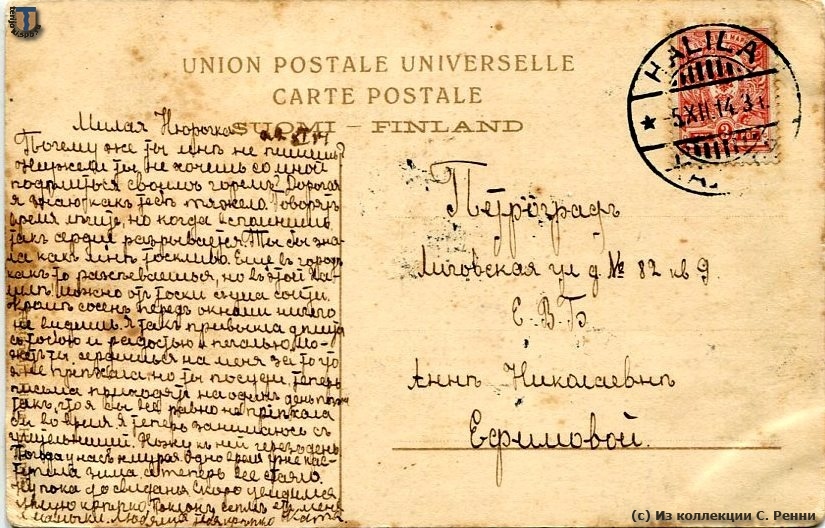 UNION POSTALE UNIVERSELLE
CARTE POSTALE
SUOMI – FINLAND
HALILA
5.XII.14
Милая Нюрочка
Почему же ты мнѣ не пишешь?
Неужели ты не хочешь со мной
подѣлиться своимъ горемъ? Дорогая
я знаю какъ тебѣ тяжело. Говорятъ
время лѣчитъ, но когда вспомнишь
такъ сердце разрывается. Ты бы зна
ла какъ мнѣ тоскливо. Еще въ городѣ
какъ то разсѣиваешься, но въ этой Ха-
лилѣ можно отъ тоски съ ума сойти.
Кромѣ сосенъ передъ окнами ничего
не видишь. Я такъ привыкла дѣлиться
съ тобою и радостью и печалью. Мо-
жетъ ты сердишься на меня за то что
я не пріѣхала, но ты посуди, теперь
письма приходятъ на день
такъ, что я бы все равно не пріѣхала
бы во время. Я теперь занимаюсь съ
учительницей. Хожу къ ней черезъ день.
Погода у насъ хмурая одно время уже нас-
тупила зима а теперь все стаяло.
Ну пока до свиданья скоро увидимся
цѣлую крѣпко. Поклонъ всѣмъ отъ меня
и мамочки. Любящая тебя крѣпко Катя.
Петроградъ
Лиговская ул д № 82 кв 9
Е. В. Б
Аннѣ Николаевнѣ
Ефимовой.
(c) Из коллекции С. Ренни